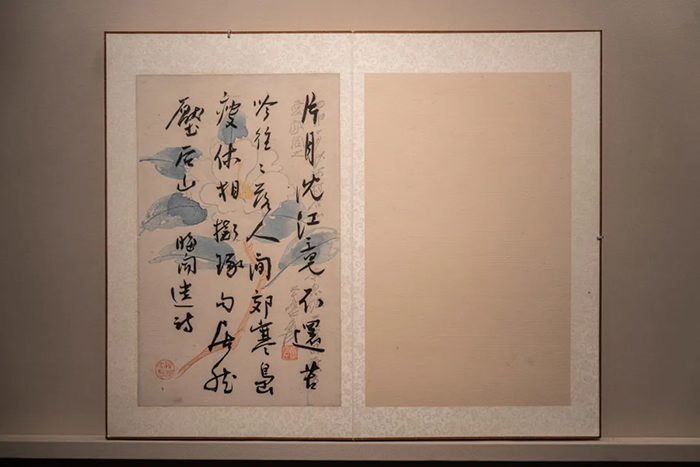 片月沈江竟不還苦
吟往〻落人間郊寒島
瘦休相擬琢句居然
壓后山 晦聞遺詩